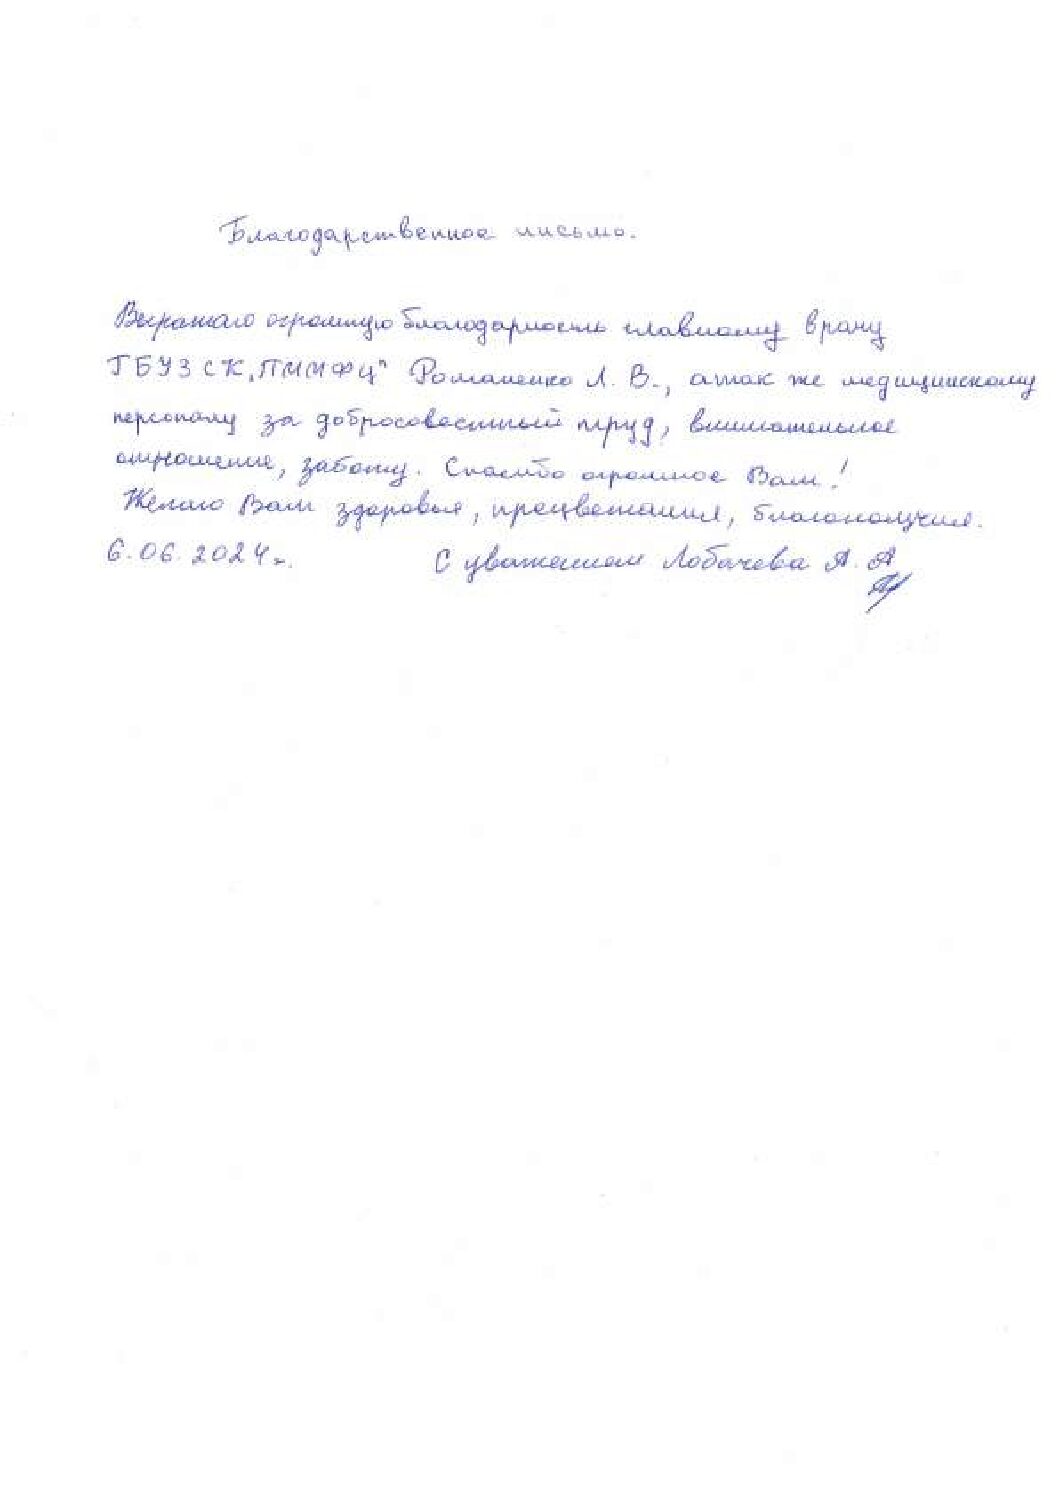 Благодарственное письмо.
Выражаю огромную благодарность главному врачу
ГБУЗ СК „ПММФЦ" Романенко Л. В., а так же медицинскому
персоналу за добросовестный труд, внимательное
отношение, заботу. Спасибо огромное Вам!
Желаю Вам здоровья, процветания, благополучия.
6.06.2024г. С уважением Лобачева А. А